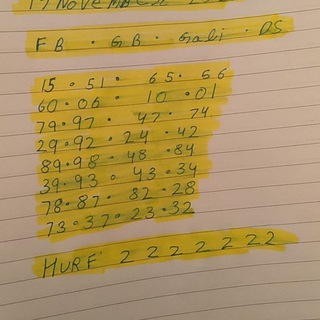 FB · GB · Gali · DS
15 · 51 · 65 · 56
60 · 06 · 10 · 01
79 · 97 · 47 · 74
29 · 92 · 24 · 42
89 · 98 · 48 · 84
39 · 93 · 43 · 34
78 · 87 · 82 · 28
73 · 37 · 23 · 32
HURF 2 2 2 2 2 2 2